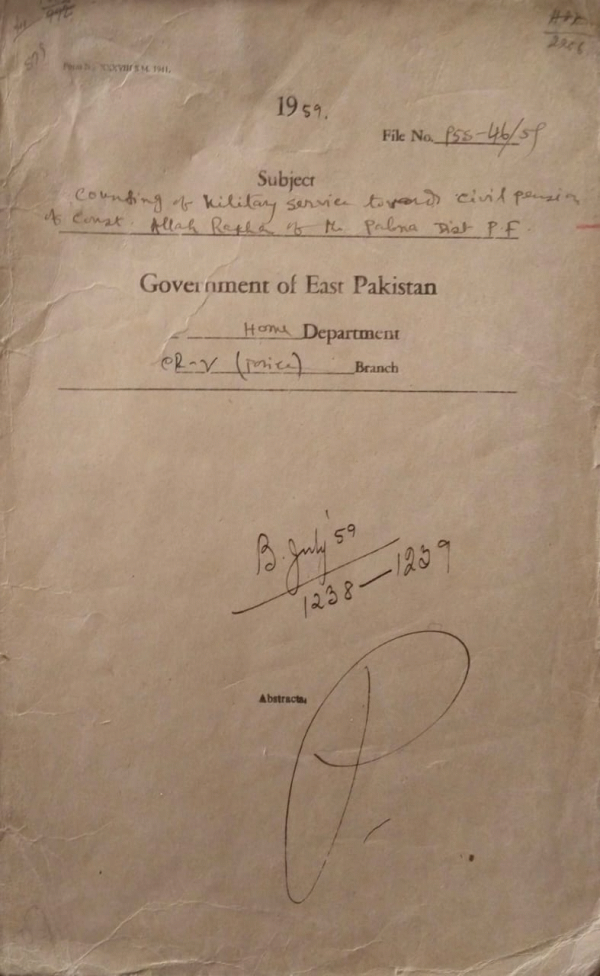 1959.
File No. P5S-46/59
Subject
Counting of Military service towards civil pension
of Const. Allah Rakha of the Pabna Dist P.F.
Government of East Pakistan
Home Department
Branch
B. July '59
1238 — 1239
Abstracts.